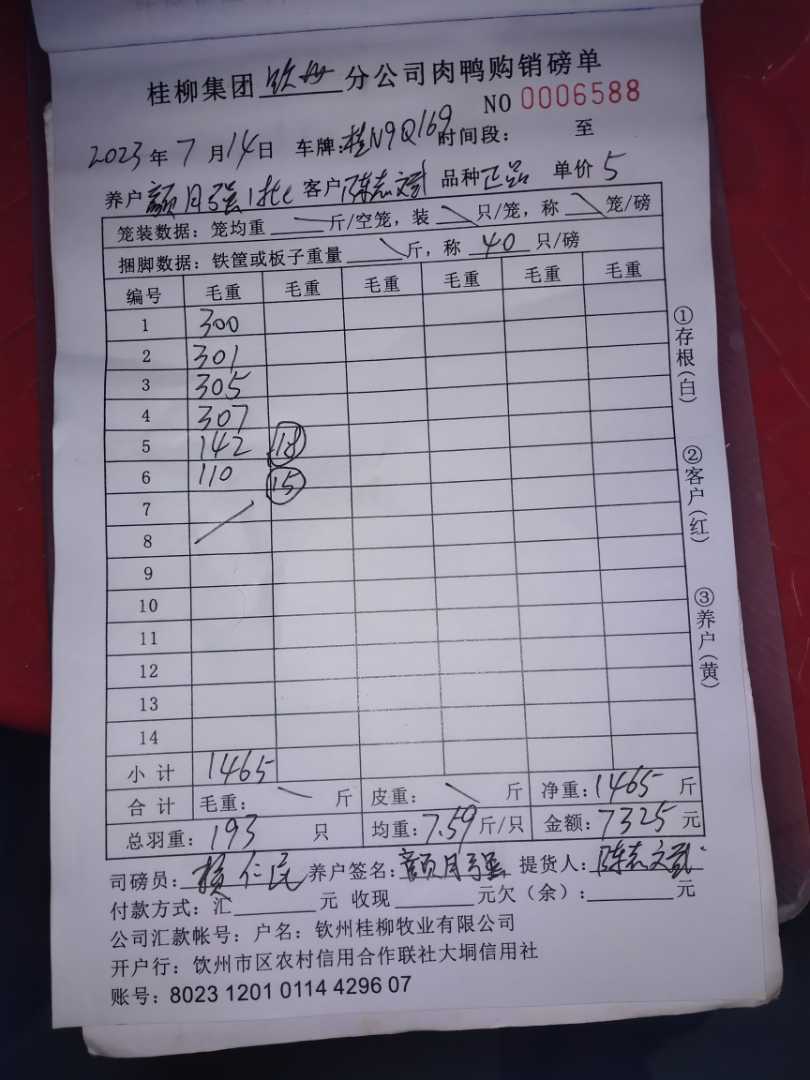 桂柳集团 钦州 分公司肉鸭购销磅单
NO 0006588
2023年7月14日 车牌:桂N9Q169 时间段: 至
养户 颜月强1批 客户 陈志文武 品种 正品 单价 5
笼装数据:笼均重 \ 斤/空笼,装 \ 只/笼,称 \ 笼/磅
捆脚数据:铁筐或板子重量 \ 斤,称 40 只/磅
编号 毛重 毛重 毛重 毛重 毛重 毛重
1 300
2 301
3 305
4 307
5 142 18
6 110 15
7
8
9
10
11
12
13
14
小计 1465
合计 毛重: \ 斤 皮重: \ 斤 净重:1465 斤
总羽重:193 只 均重:7.59 斤/只 金额:7325 元
司磅员:杨仁民 养户签名:颜月强 提货人:陈志文武
付款方式:汇 元 收现 元欠(余): 元
公司汇款帐号:户名:钦州桂柳牧业有限公司
开户行:钦州市区农村信用合作联社大垌信用社
账号:8023 1201 0114 4296 07
①存根(白)
②客户(红)
③养户(黄)